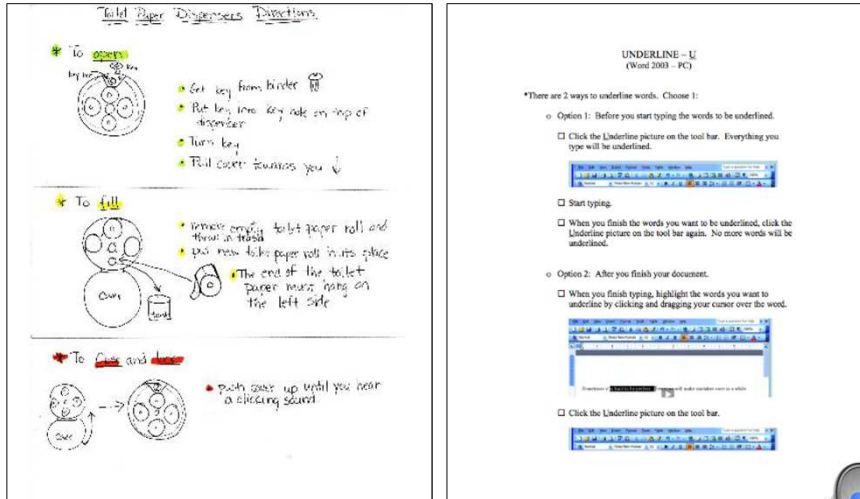 Toilet Paper Dispensers Directions
* To open
key
• Get key from binder
• Put key into key hole on top of
dispenser
• Turn key
• Pull cover towards you ↓
* To fill
• remove empty toilet paper roll and
throw in trash
• put new toilet paper roll in its place
• The end of the toilet
paper must hang on
the left side
Cover
trash
* To close and lock
• push cover up until you hear
a clicking sound.
Cover
UNDERLINE – U
(Word 2003 – PC)
*There are 2 ways to underline words. Choose 1:
o Option 1: Before you start typing the words to be underlined.
☐ Click the Underline picture on the tool bar. Everything you
type will be underlined.
☐ Start typing.
☐ When you finish the words you want to be underlined, click the
Underline picture on the tool bar again. No more words will be
underlined.
o Option 2: After you finish your document.
☐ When you finish typing, highlight the words you want to
underline by clicking and dragging your cursor over the word.
☐ Click the Underline picture on the tool bar.